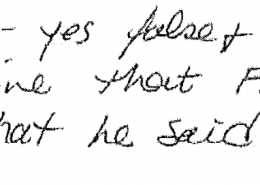 - yes false,
ine that F
hat he said